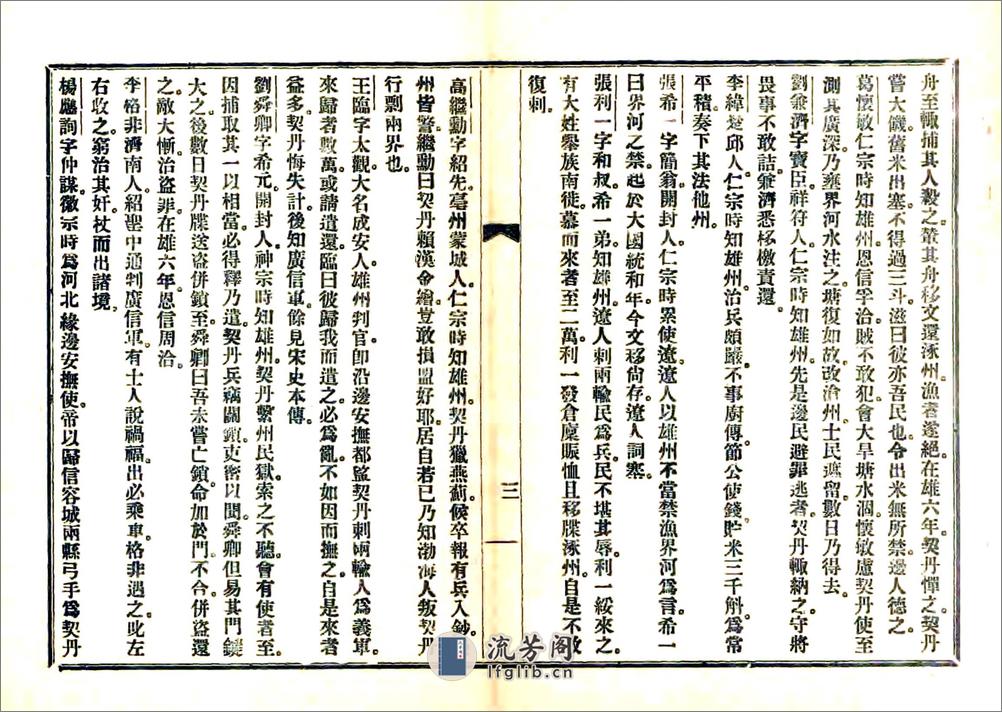 舟至輒捕其人殺之。輦其舟移文還涿州漁者遂絕。在雄六年。契丹憚之。契丹
嘗大饑舊米出塞不得過三斗。滋曰彼亦吾民也。令出米無所禁。邊人德之。
葛懷敏仁宗時知雄州。恩信孚洽賊不敢犯。會大旱塘水涸。懷敏慮契丹使至
測其廣深乃壅界河水注之。塘復如故。改滄州。士民遮留數日乃得去。
劉兼濟字寶臣祥符人。仁宗時知雄州。先是邊民避罪逃者契丹輒納之。守將
畏事不敢詰。兼濟悉移檄責還。
李緯楚邱人。仁宗時知雄州。治兵頗嚴。不事廚傳。節公使錢貯米三千斛。爲常
平積。奏下其法他州。
張希一字簡翁開封人。仁宗時累使遼。遼人以雄州不當禁漁界河爲言。希一
曰界河之禁起於大國統和年。今文移尙存。遼人詞塞。
張利一字和叔。希一弟。知雄州。遼人刺兩輸民爲兵。民不堪其辱。利一綏來之。
有大姓舉族南徙。慕而來者至二萬。利一發倉廩賑恤。且移牒涿州。自是不敢
復刺。
三
高繼勳字紹先。亳州蒙城人。仁宗時知雄州。契丹獵燕薊。候卒報有兵入鈔。邊
州皆警。繼勳曰契丹賴漢金繒豈敢損盟好耶。居自若。已乃知渤海人叛契丹
行剽兩界也。
王臨字太觀大名成安人。雄州判官卽沿邊安撫都監。契丹刺兩輸人爲義軍。
來歸者數萬。或請遣還。臨曰彼歸我而遣之。必爲亂。不如因而撫之。自是來者
益多。契丹悔失計。後知廣信軍。餘見宋史本傳。
劉舜卿字希元。開封人。神宗時知雄州。契丹繫州民獄索之不聽。會有使者至
因捕取其一以相當。必得釋乃遣。契丹兵竊關鎖。吏密以聞。舜卿但易其門鍵
大之。後數日契丹牒送盜併鎖至。舜卿曰吾未嘗亡鎖。命加於門。不合。併盜還
之。敵大慚治盜罪。在雄六年。恩信周洽。
李格非濟南人。紹聖中通判廣信軍。有士人說禍福。出必乘車。格非遇之叱左
右收之。窮治其奸。杖而出諸境。
楊應詢字仲謀。徽宗時爲河北緣邊安撫使。帝以歸信容城兩縣弓手爲契丹
流芳阁
lfglib.cn